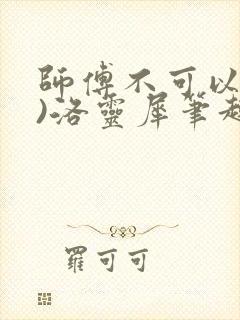 師傅不可以
)洛靈犀筆
羅可可